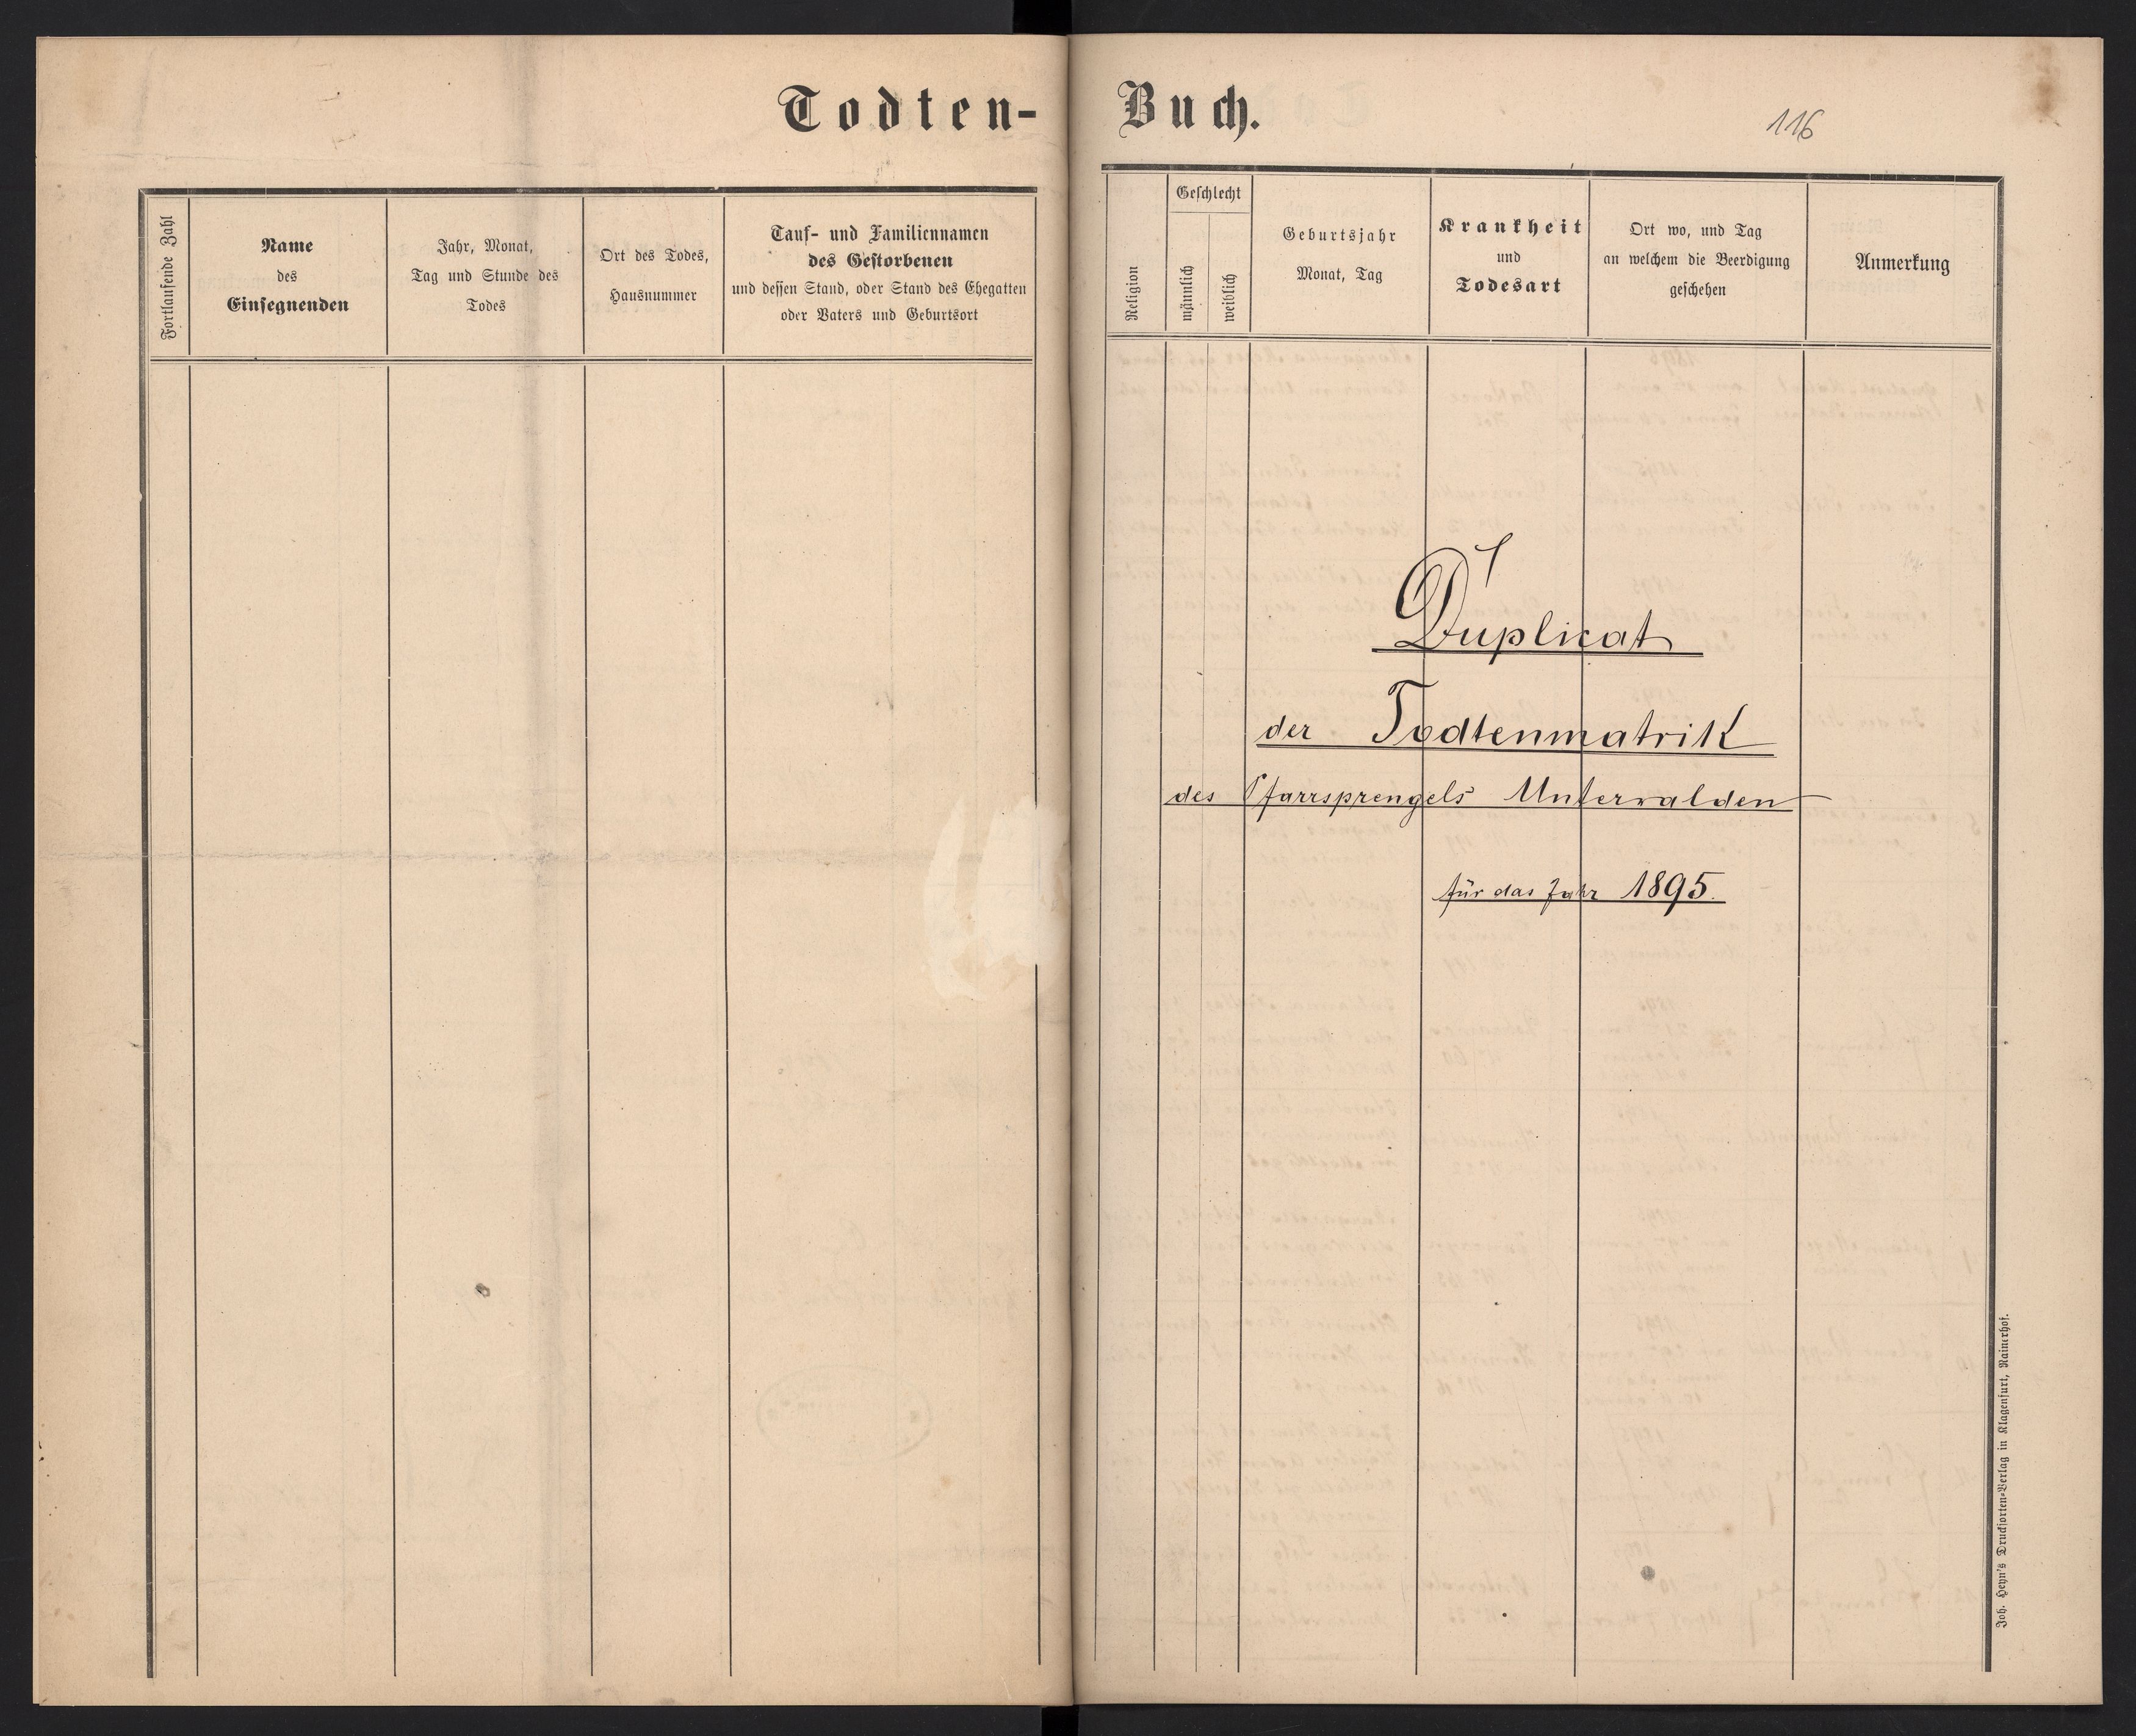 Todten-
Buch.
116
Fortlaufende Zahl
Name
des
Einsegnenden
Jahr, Monat,
Tag und Stunde des
Todes
Ort des Todes,
Hausnummer
Tauf- und Familiennamen
des Gestorbenen
und dessen Stand, oder Stand des Ehegatten
oder Vaters und Geburtsort
Religion
Geschlecht
männlich
weiblich
Geburtsjahr
Monat, Tag
Krankheit
und
Todesart
Ort wo, und Tag
an welchem die Beerdigung
geschehen
Anmerkung
Duplicat
der Todtenmatrik
des Pfarrsprengels Unterwalden
für das Jahr 1895.
Joh. Heyn's Drucksorten-Verlag in Klagenfurt, Rainerhof.